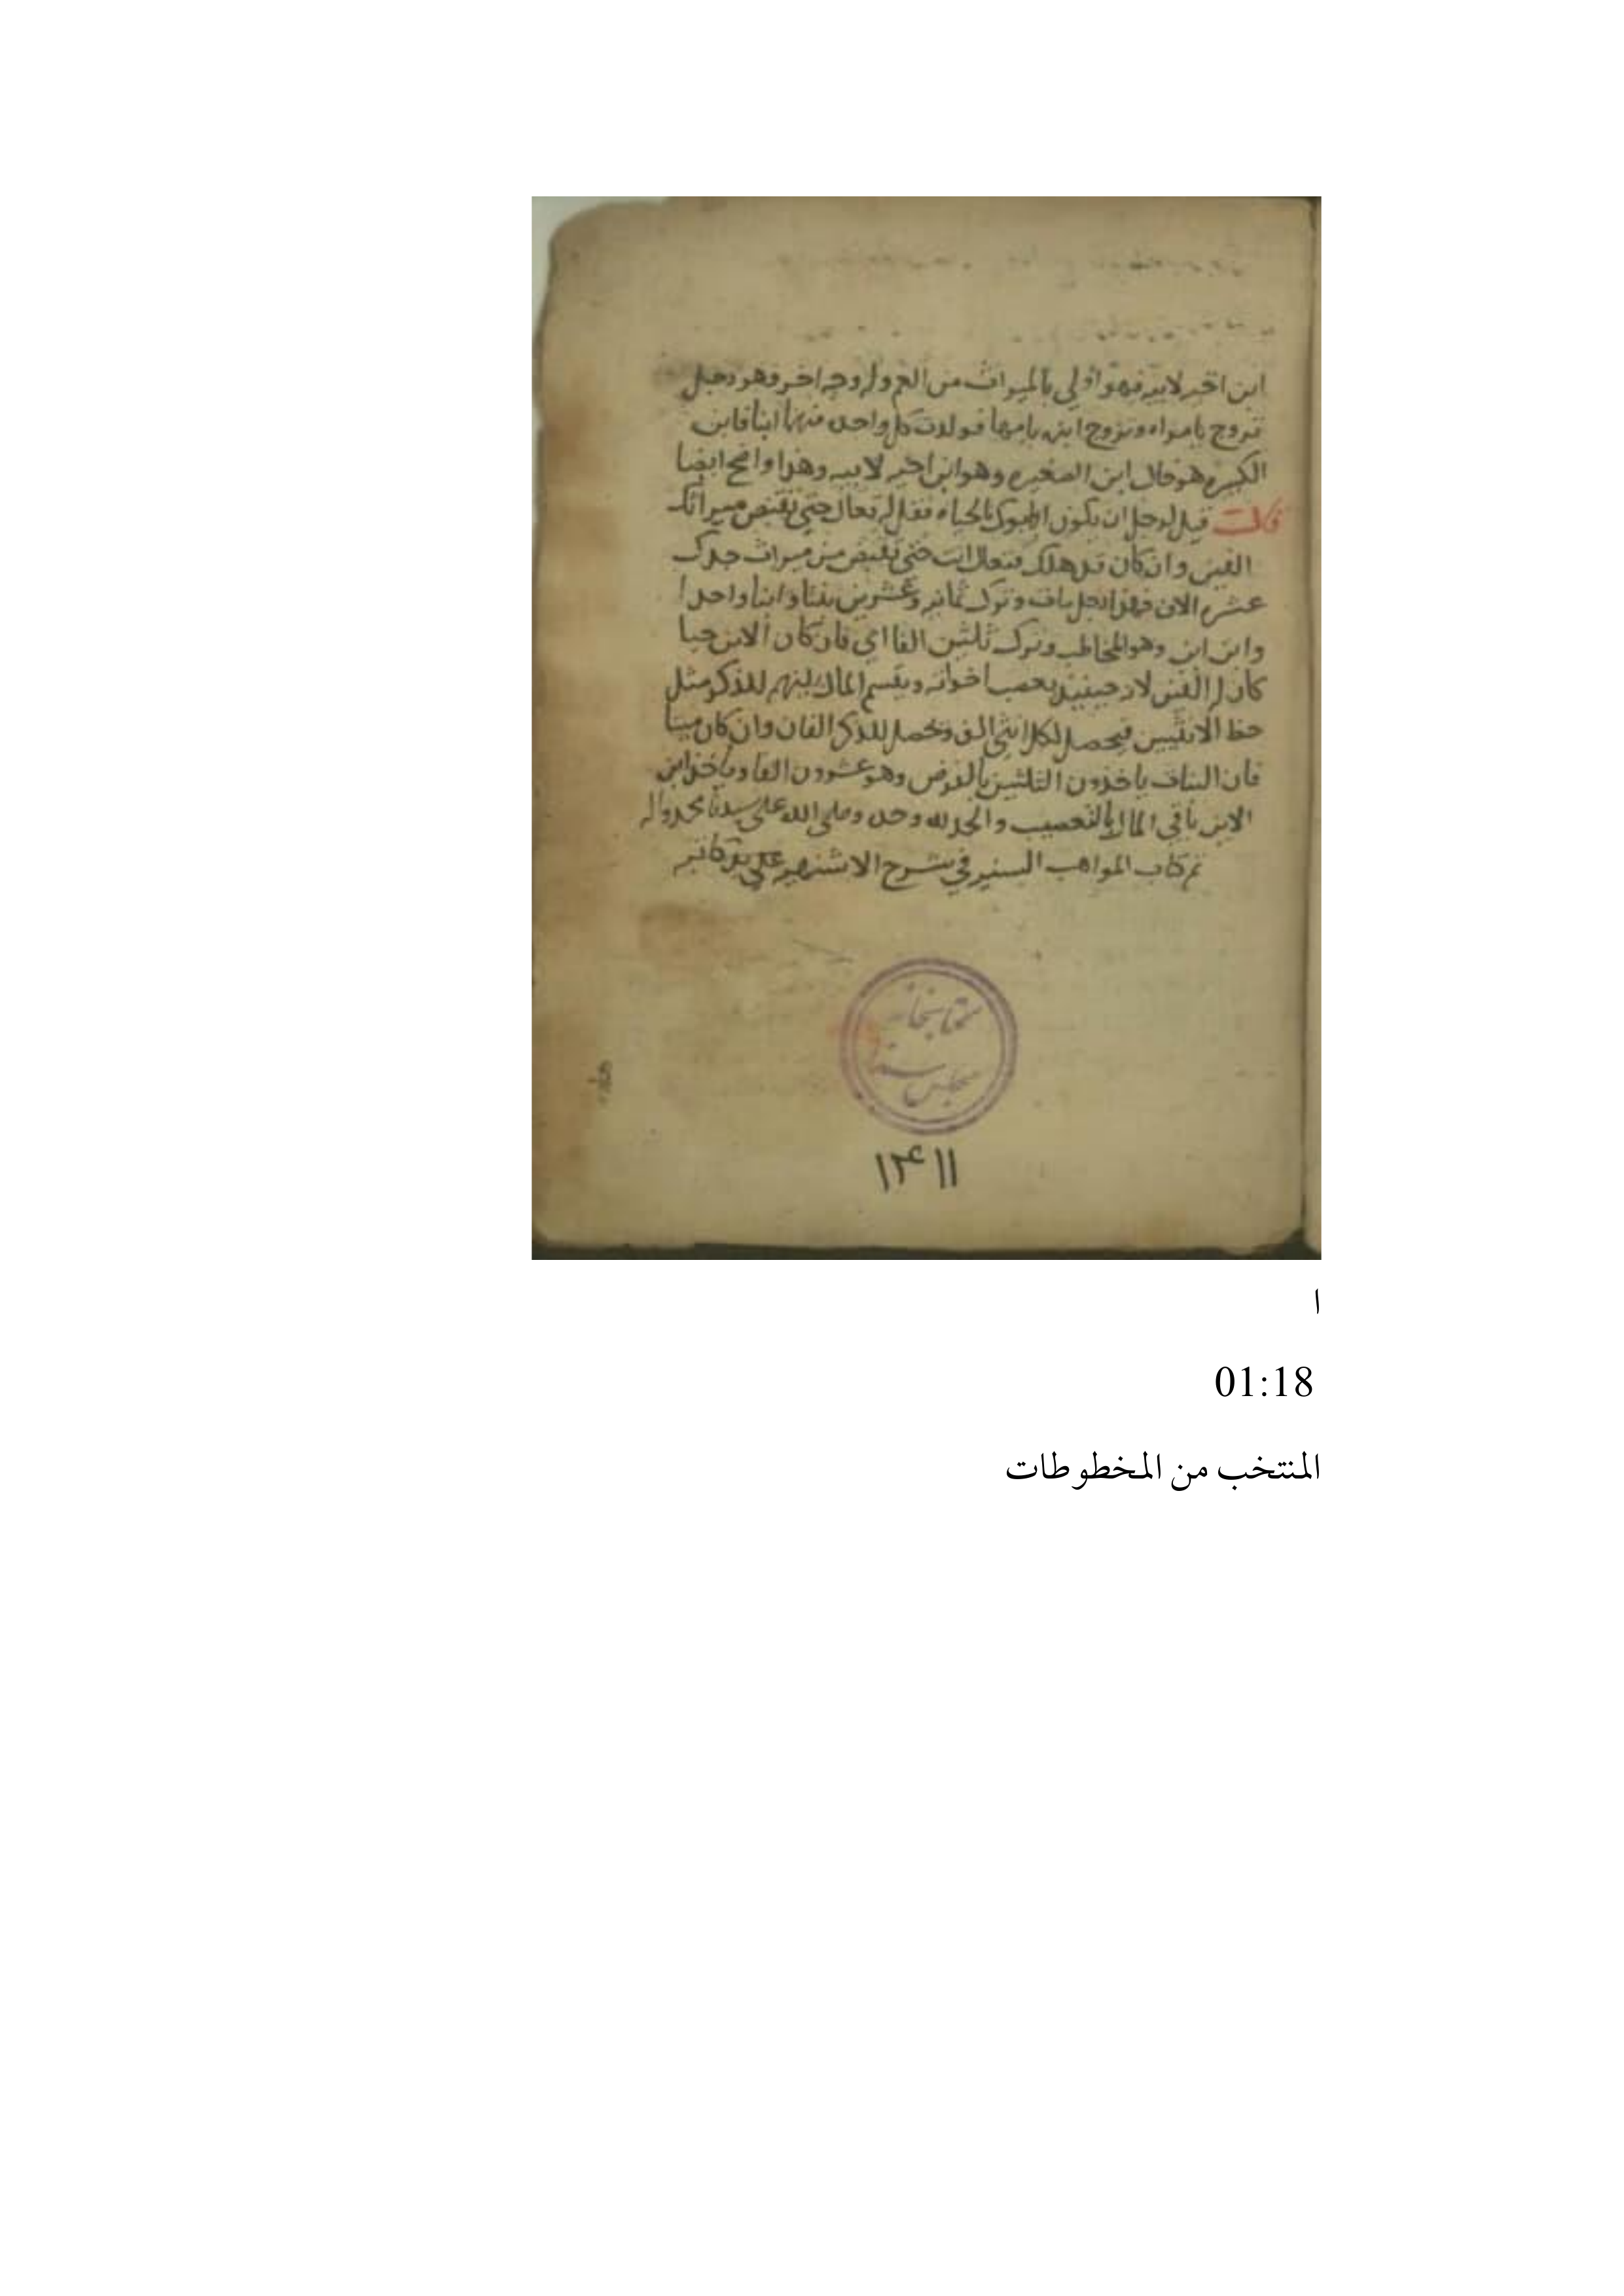 ابن اخيه لابيه فهو اولي بالميراث من العم وله وجه اخر وهو رجل
تزوج بامراه وتزوج ابنه بامها فولدت كل واحده منهما ابنا فابن
الكبيره هو خال ابن الصغيره وهو ابن اخيه لابيه وهذا واضح ايضا
قالت قيل لرجل ان يكون ابوك بالحياه فقل له تعال حتي تقبض ميراثك
الفين وان كان قد هلك فتعال انت حتي تقبض من ميراث جدك
عشره الاف فهذا رجل مات وترك ثمانيه وعشرين بنتا وابنا واحدا
وابن ابن وهو المخاطب وترك ثلثين الفا اي فان كان الابن حيا
كان له الفين لانه حينيذ يعصب اخواته ويقسم المال بينهم للذكر مثل
حظ الانثيين فيحصل لكل انثي الف ويحصل للذكر الفان وان كان ميتا
فان البنات ياخذون الثلثين بالفرض وهو عشرون الفا وياخذ ابن
الابن باقي المال بالتعصيب والحمد لله وحده وصلي الله علي سيدنا محمد واله
تم كتاب المواهب السنيه في شرح الاشنهيه علي يد كاتبه
كتابخانه
مجلس
۱۴۱۱
ا
01:18
المنتخب من المخطوطات